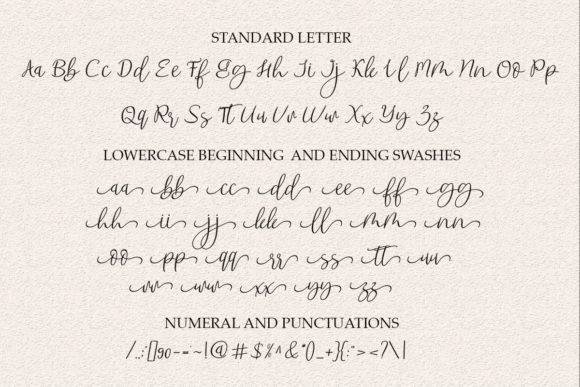 STANDARD LETTER
Aa Bb Cc Dd Ee Ff Gg Hh Ii Jj Kk Ll Mm Nn Oo Pp
Qq Rr Ss Tt Uu Vv Ww Xx Yy Zz
LOWERCASE BEGINNING AND ENDING SWASHES
aa bb cc dd ee ff gg
hh ii jj kk ll mm nn
oo pp qq rr ss tt uu
vv ww xx yy zz
NUMERAL AND PUNCTUATIONS
/.,:[]90-=`~!@#$%^&*()_+{}:"><?\|